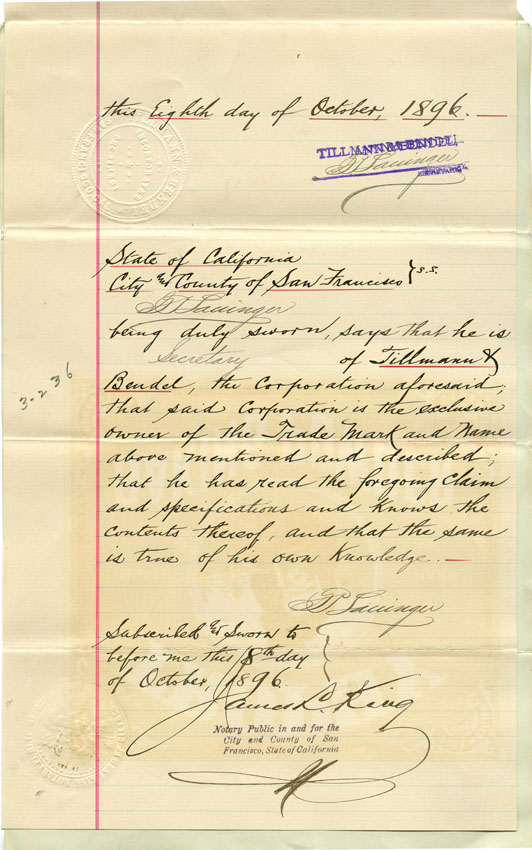 this Eighth day of October, 1896.
TILLMANN & BENDEL,
State of California
City and County of San Francisco } s.s.
being duly sworn, says that he is
Secretary of Tillmann &
Bendel, the Corporation aforesaid;
that said Corporation is the exclusive
owner of the Trade Mark and Name
above mentioned and described;
that he has read the foregoing Claim
and specifications and knows the
contents thereof, and that the same
is true of his own Knowledge.
3-236
Subscribed and Sworn to
before me this 8th day
of October, 1896
James L. King
Notary Public in and for the
City and County of San
Francisco, State of California